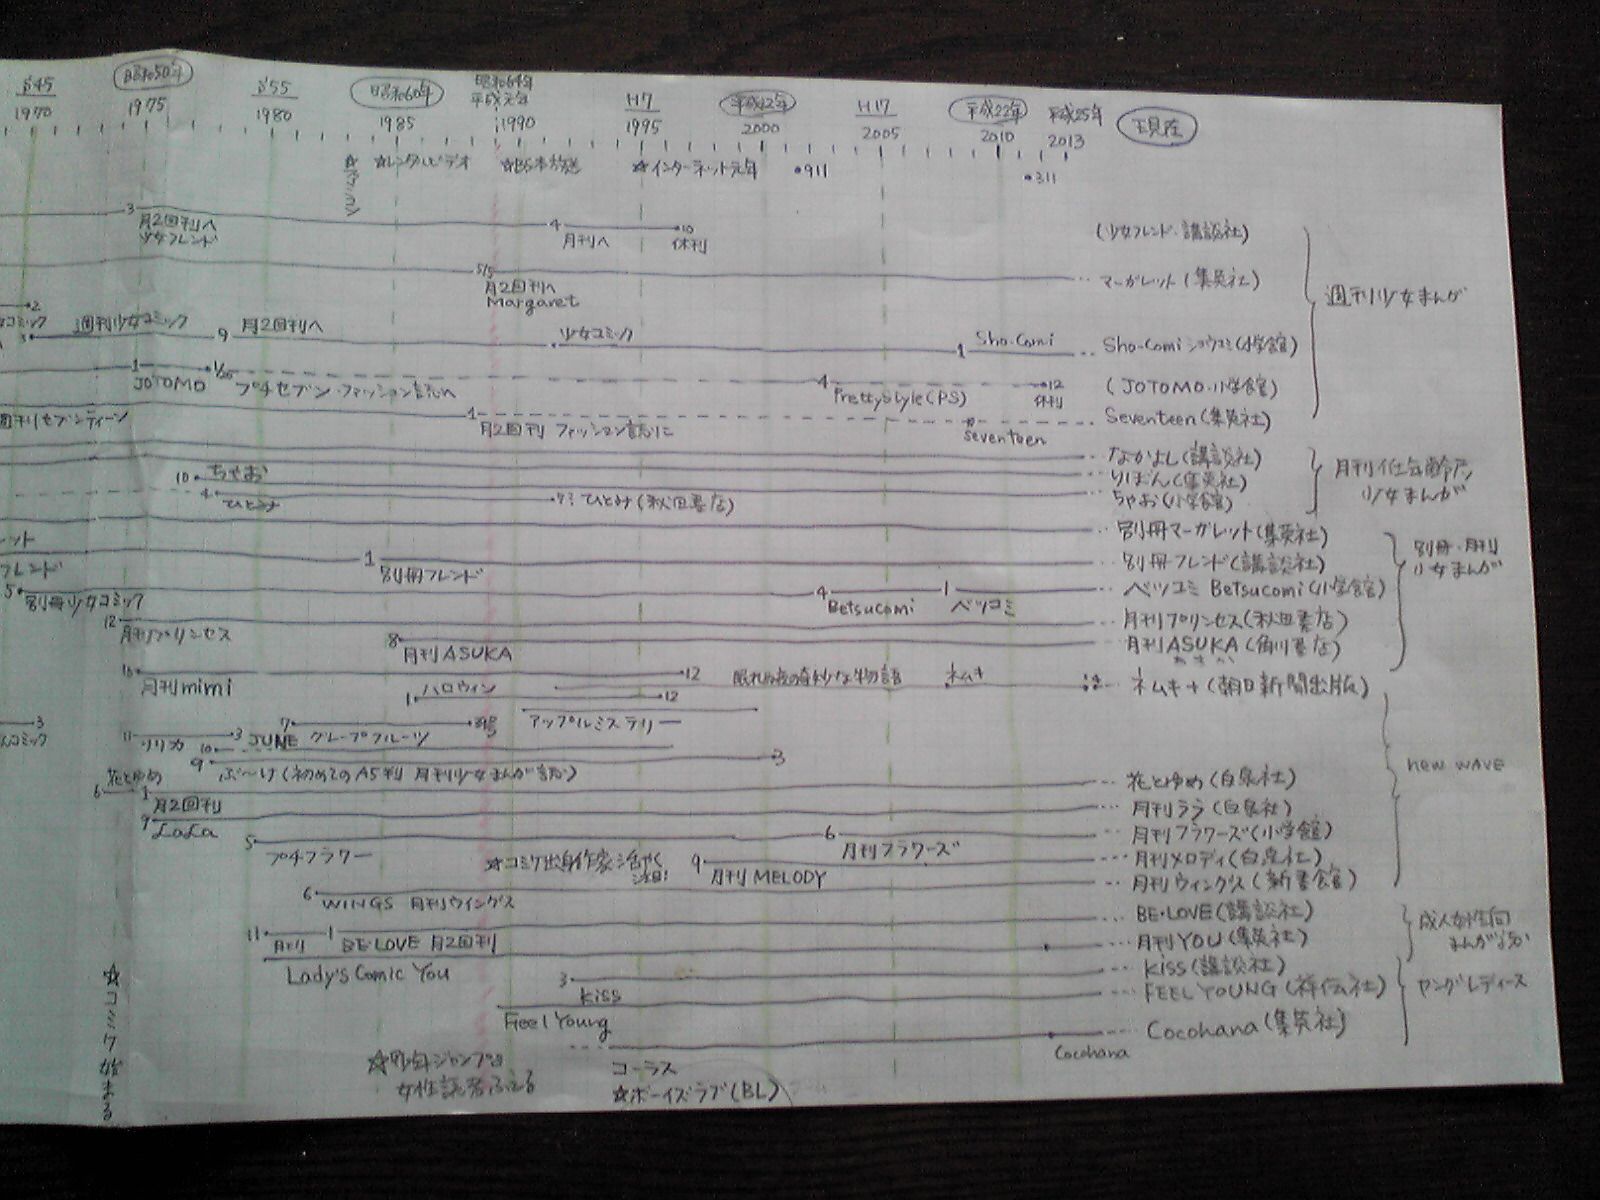 S45 昭和50年 S55 昭和60年 昭和64年 平成元年 H7 平成12年 H17 平成22年 平成25年 現在
1970 1975 1980 1985 1990 1995 2000 2005 2010 2013
☆ファミコン ☆レンタルビデオ ☆BS本放送 ☆インターネット元年 •911 •311
3 月2回刊へ 少女フレンド 4 月刊へ 10 休刊 (少女フレンド・講談社)
5/5 月2回刊へ Margaret … マーガレット(集英社)
週刊少女まんが
2
週刊少女コミック 9 月2回刊へ 少女コミック 1 Sho-Comi … Sho-Comi ショウコミ(小学館)
1 JOTOMO プチセブン・ファッション誌へ 4 PrettyStyle(PS) 12 休刊 (JOTOMO・小学館)
週刊セブンティーン 1 月2回刊 ファッション誌に seventeen … Seventeen(集英社)
… なかよし(講談社)
… りぼん(集英社)
10 ちゃお … ちゃお(小学館)
4 ひとみ ひとみ(秋田書店)
月刊低年齢 少女まんが
… 別冊マーガレット(集英社)
フレンド 1 別冊フレンド … 別冊フレンド(講談社)
別冊・月刊 少女まんが
5 別冊少女コミック 4 Betsucomi 1 ベツコミ … ベツコミ Betsucomi(小学館)
12 月刊プリンセス … 月刊プリンセス(秋田書店)
8 月刊ASUKA … 月刊ASUKA(角川書店)
あすか
10 月刊mimi 12 眠れぬ夜の奇妙な物語 ネムキ ネムキ+(朝日新聞出版)
1 ハロウィン 12
アップルミステリー
3 11 リリカ 3 7 グレープフルーツ
10 JUNE
9 ぶ〜け(初めてのA5判 月刊少女まんが誌) 3
new wave
6 花とゆめ 1 月2回刊 … 花とゆめ(白泉社)
9 LaLa … 月刊ララ(白泉社)
5 プチフラワー 6 月刊フラワーズ … 月刊フラワーズ(小学館)
☆コミケ出身作家活やく 注目! 9 月刊 MELODY … 月刊メロディ(白泉社)
6 WINGS 月刊ウイングス … 月刊ウィングス(新書館)
11 月刊 1 BE・LOVE 月2回刊 … BE・LOVE(講談社)
Lady's Comic You … 月刊YOU(集英社)
成人女性向 まんが誌
3 kiss … kiss(講談社)
Feel Young … FEEL YOUNG(祥伝社)
ヤングレディース
コーラス Cocohana … Cocohana(集英社)
☆コミケ始まる
☆少年ジャンプの 女性読者ふえる
☆ボーイズラブ(BL)